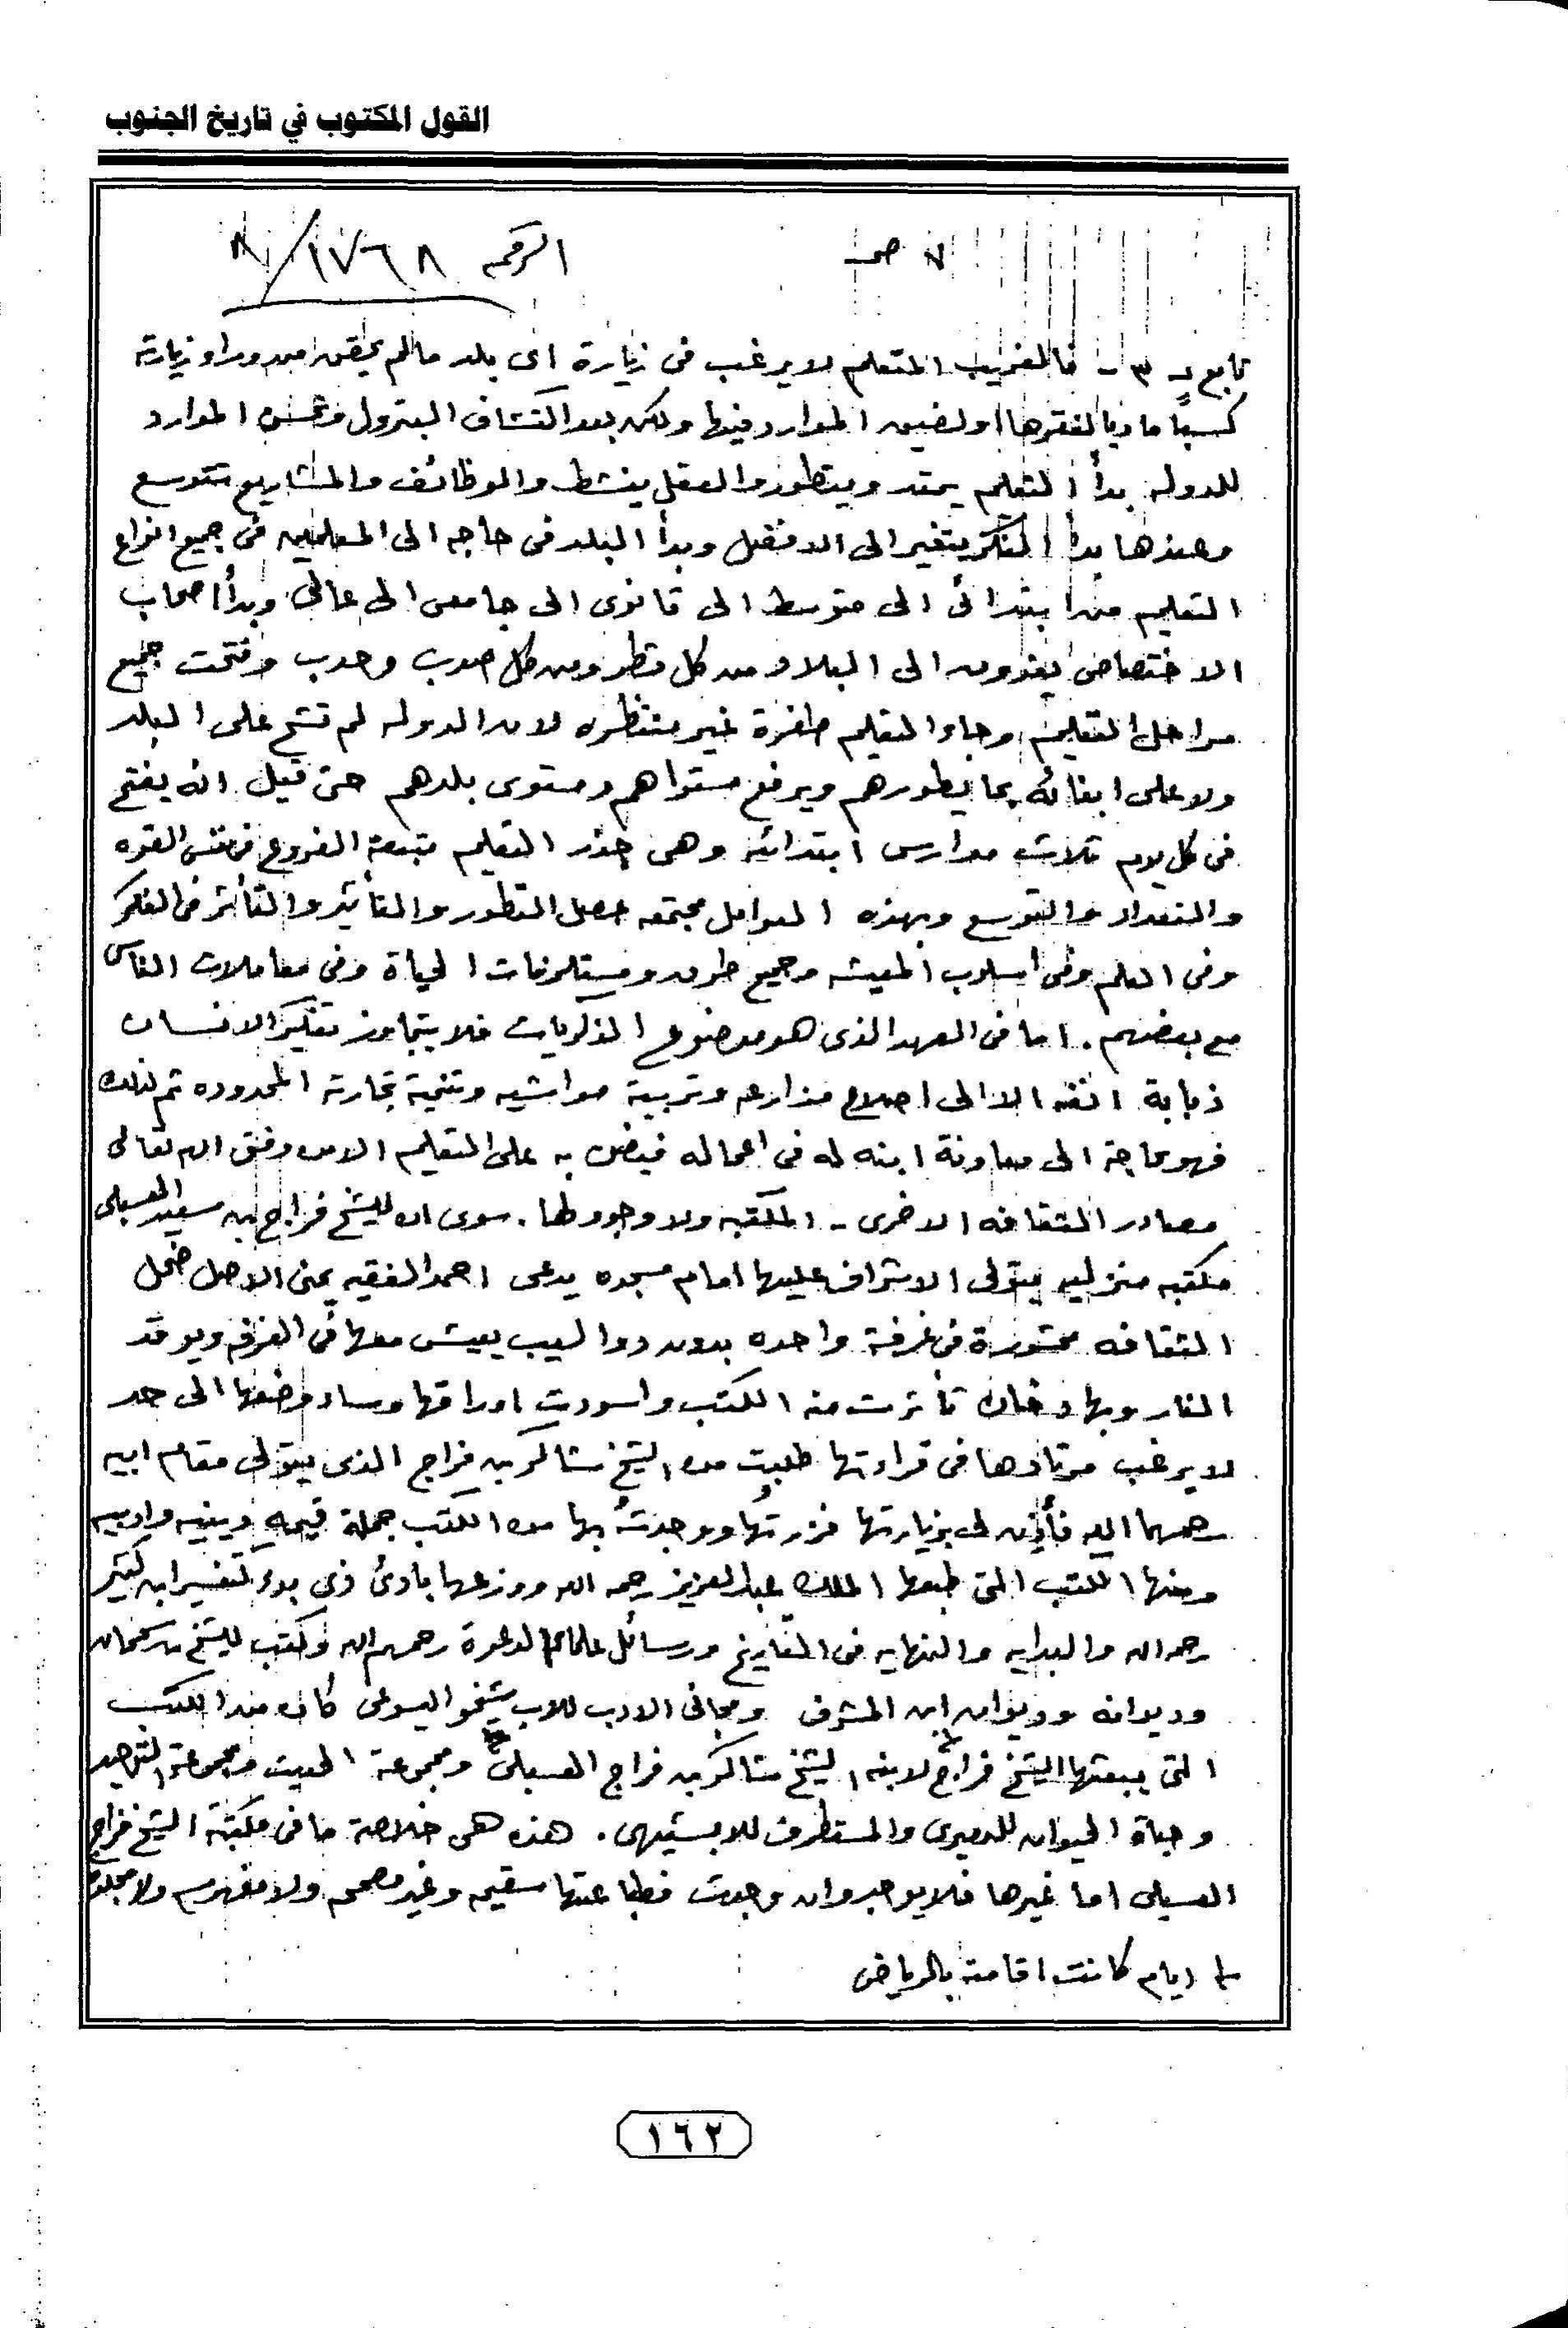 القول المكتوب في تاريخ الجنوب
٧ صـ
الرقم ١٧٦٨/٨
تابع - ٣ - فالغريب المتعلم لا يرغب في زيارة اى بلد مالم يحقق من وراء زيارته
كسبًا ماديا لفقرها اولضيق الموارد فيها ولكن بعد اكتشاف البترول وتحسن الموارد
للدوله بدأ التعليم يمتد ويتطور والعقل ينشط والوظائف والمشاريع تتوسع
وعندها بدأ الفكر يتغير الى الافضل وبدأ البلد في حاجه الى المعلمين في جميع انواع
التعليم من ابتدائى الى متوسط الى ثانوى الى جامعى الى عالى وبدأ اصحاب
الاختصاص يفدون الى البلاد من كل قطر ومن كل صوب وحدب وفتحت جميع
مراحل التعليم وجاء التعليم طفرة غير منتظره لان الدوله لم تشح على البلد
ولا على ابنائه بما يطورهم ويرفع مستواهم ومستوى بلدهم حتى قيل انه يفتح
في كل يوم ثلاث مدارس ابتدائيه وهى جذر التعليم متبعة الفروع في نفس القوه
والتعداد والتوسع وبهذه العوامل مجتمعه حصل التطور والتأثير والتأثر في الفكر
وفى العلم وفى اسلوب المعيشه وجميع طرق ومستلزمات الحياة وفى معاملات الناس
مع بعضهم. اما في العهد الذى هو موضوع الذكريات فلا يتجاوز تفكير الانسان
ذبابة انفه الا الى اصلاح مزارعه وتربية مواشيه وتنمية تجارته المحدوده ثم لذلك
فهو بحاجة الى معاونة ابنه له في اعماله فيضن به على التعليم الا من وفق الله تعالى
مصادر الثقافه الاخرى - المكتبه ولا وجود لها. سوى ان للشيخ فراج بن سعيد العسبلى
مكتبه منزليه يتولى الاشراف عليها امام مسجده يدعى احمد الفقيه يمنى الاصل ضحل
الثقافه محشورة في غرفة واحده بدون دواليب يعيش معها في الغرفه ويوقد
النار وبها دخان تأثرت منه الكتب واسودت اوراقها وساء وضعها الى حد
لا يرغب مرتادها في قراءتها طلبت من الشيخ شاكر بن فراج الذى يتولى مقام ابيه
رحمهما الله فأذن لى بزيارتها فزرتها ووجدت بها من الكتب جملة قيمه دينيه وادبيه
ومنها الكتب التى طبعها الملك عبدالعزيز رحمه الله ووزعها بادئ ذى بدء كتفسير ابن كثير
رحمه الله والبدايه والنهايه في التاريخ ورسائل علماء الدعوة رحمهم الله وكتب للشيخ بن سحمان
وديوانه وديوان ابن المشرف ومجانى الادب للاب شيخو اليسوعى كان من الكتب
التى يبعثها الشيخ فراج لابنه الشيخ شاكر بن فراج العسبلى ومجموعة الحديث ومجموعة التوحيد
وحياة الحيوان للدميرى والمستطرف للابشيهى. هذه هى خلاصة ما في مكتبة الشيخ فراج
العسبلى اما غيرها فلا يوجد وان وجدت فطباعتها سقيمه وغير مصححه ولا مفهرسه ولا مجلده
ايام كانت اقامته بالرياض
١٦٢